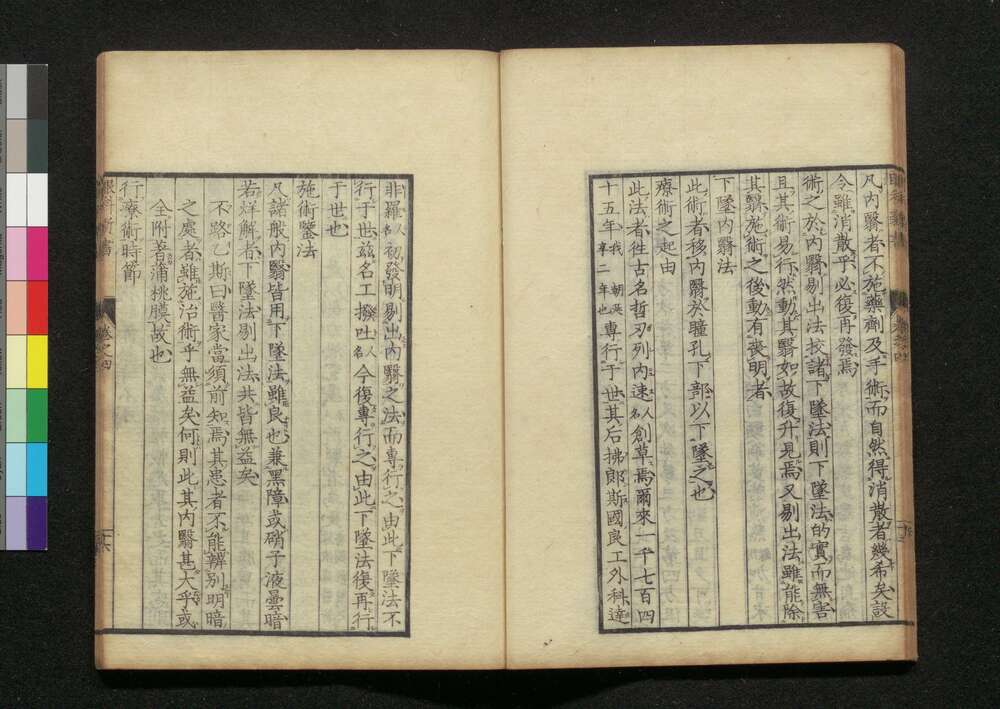 凡内翳者不施藥劑及手術而自然得消散者幾希矣設
令雖消散乎必復再發焉
術之於内翳剔出法挍諸下墜法則下墜法的實而無害
且其術易行然動其翳如故復升見焉又剔出法雖能除
其翳施術之後動有喪明者
下墜内翳法
此術者移内翳於瞳孔下部以下墜之也
療術之起由
此法者往古名哲刃列内速人名創草焉爾來一千七百四
十五年我 朝后 二年也專行于世其后拂郎斯國良工外科達
非羅人名初發明剔出内翳之法而專行之由此下墜法不
行于世茲名工撥吐人名今復專行之由此下墜法復再行
于世也
施術鑒法
凡諸般内翳皆用下墜法雖良也兼黑障或硝子液曇暗
若烊解者下墜法剔出法共皆無益矣
不路乙斯曰醫家當須前知焉其患者不能辨別明暗
之處者雖施治術乎無益矣何則此其内翳甚大乎或
全附著蒲桃膜故也
行療術時節
卷之四